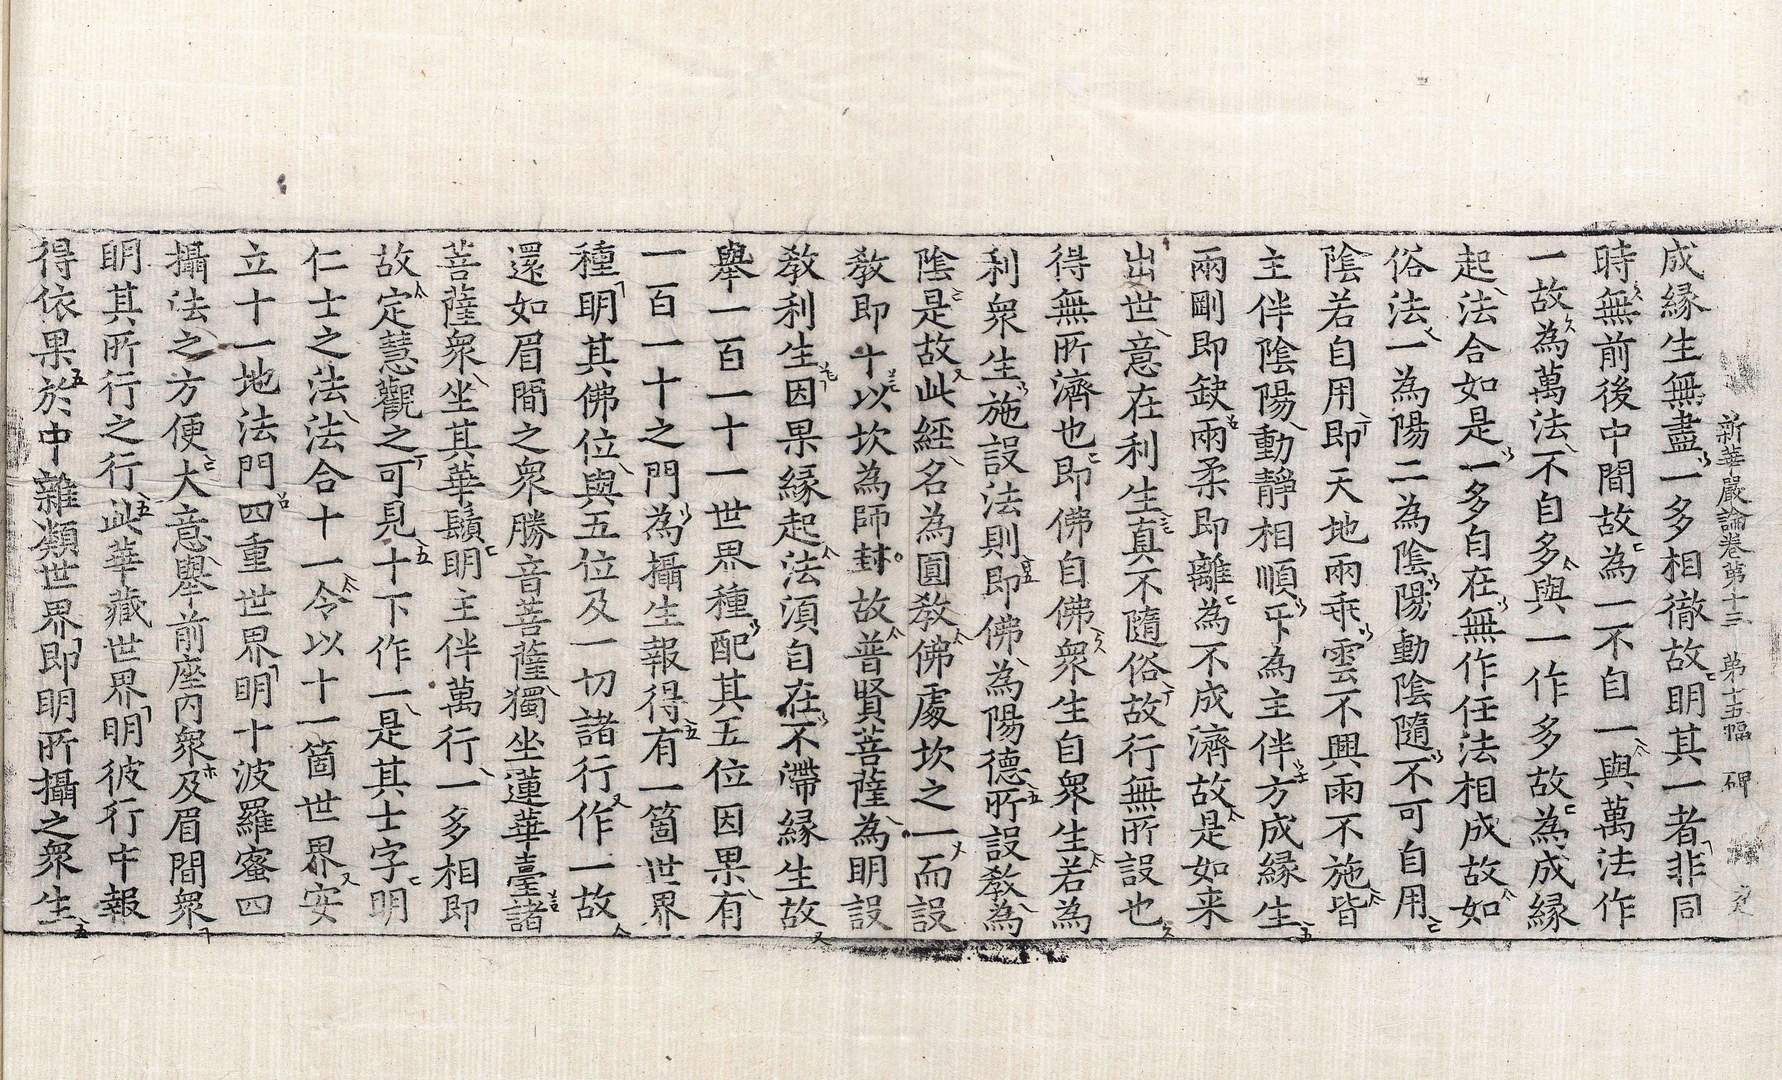 新華嚴論卷第十三 第十五幅 碑
成緣生無盡一多相徹故明其一者非同
時無前後中間故為一不自一與萬法作
一故為萬法不自多與一作多故為成緣
起法合如是一多自在無作任法相成故如
俗法一為陽二為陰陽動陰隨不可自用
陰若自用即天地兩乖雲不興雨不施皆
主伴陰陽動靜相順乐為主伴方成緣生
兩剛即缺兩柔即離為不成濟故是如来
出世意在利生真不隨俗故行無所設也
得無所濟也即佛自佛衆生自衆生若為
利衆生施設法則即佛為陽德所設教為
陰是故此經名為圓教佛處坎之一而設
教即十以坎為師封故普賢菩薩為明設
教利生因果緣起法湏自在不滯緣生故
舉一百一十一世界種配其五位因果有
一百一十之門為攝生報得有一箇世界
種明其佛位與五位及一切諸行作一故
還如眉間之衆勝音菩薩獨坐蓮華臺諸
菩薩衆坐其華鬚明主伴萬行一多相即
故定慧觀之可見十下作一是其士字明
仁士之法法合十一令以十一箇世界安
立十一地法門四重世界明十波羅蜜四
攝法之方便大意舉前座內衆及眉間衆
明其所行之行此華藏世界明彼行中報
得依果於中雜類世界即明所攝之衆生